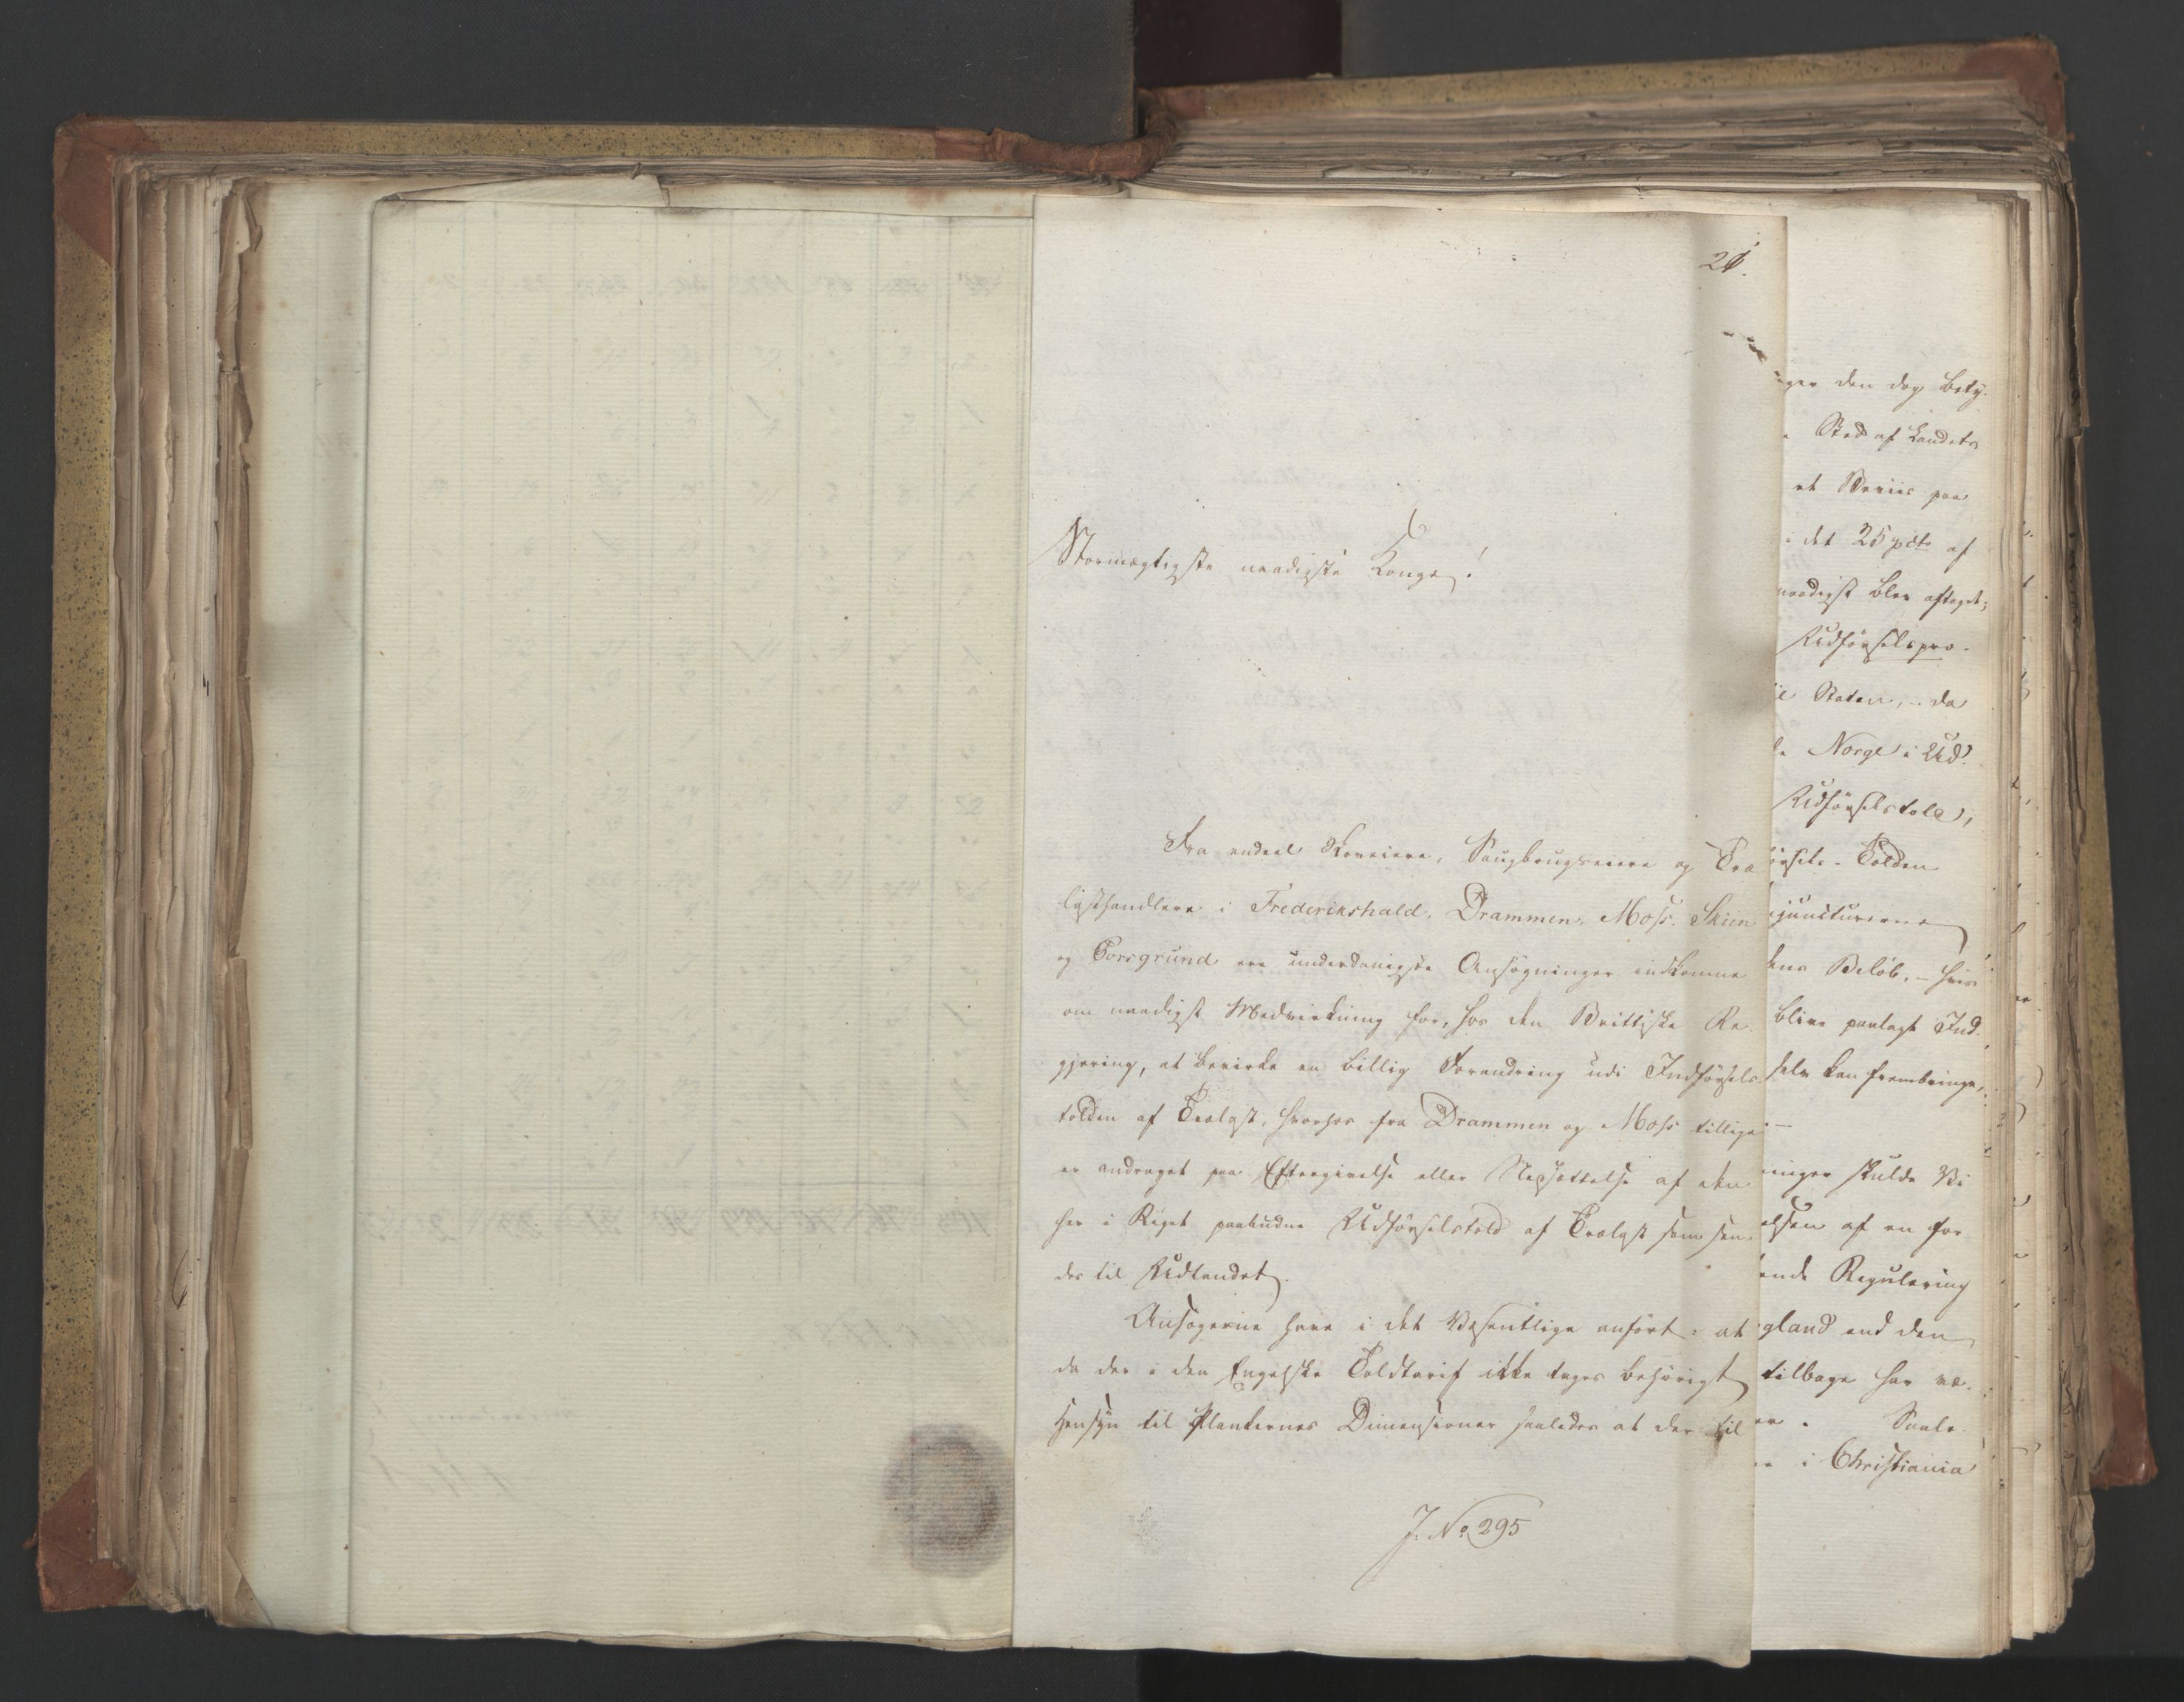 21.
Stormægtigste naadigste Konge!
Fra endeel Skoveiere, Saugbrugseiere og Træ
lasthandlere i Frederikshald, Drammen, Moss, Skien
og Porsgrund ere underdanigste Ansøgninger indkomne
om naadigst Medvirkning for, hos den Brittiske Re-
gjering, at bevirke en billig Forandring udi Indførsels
tolden af Trælast, hvorhos fra Drammen og Moss tillige
er andraget paa Eftergivelse eller Nedsættelse af den
her i Riget paabudne Udførselstold af Trælast som sen-
des til Udlandet.
Ansøgerne have i det Væsentlige anført: at
da der i den Engelske Toldtarif ikke tages behørigt
Hensyn til Plankernes Dimensioner saaledes at der til
J. No 295
den dog bety-
Sted af Landets
et Beviis paa
i det 25 pCt af
naadigst blev aftaget;
Udførselspro-
Staten, - da
Norge i Ud-
Udførselstold,
førsels-Tolden
juncturerne
Beløb, - hvis
blive paalagt Ind-
selv kan frembringe,
skulde Vi
af en for
Regulering
gland end den
tilbage har væ-
Saale
i Christiania